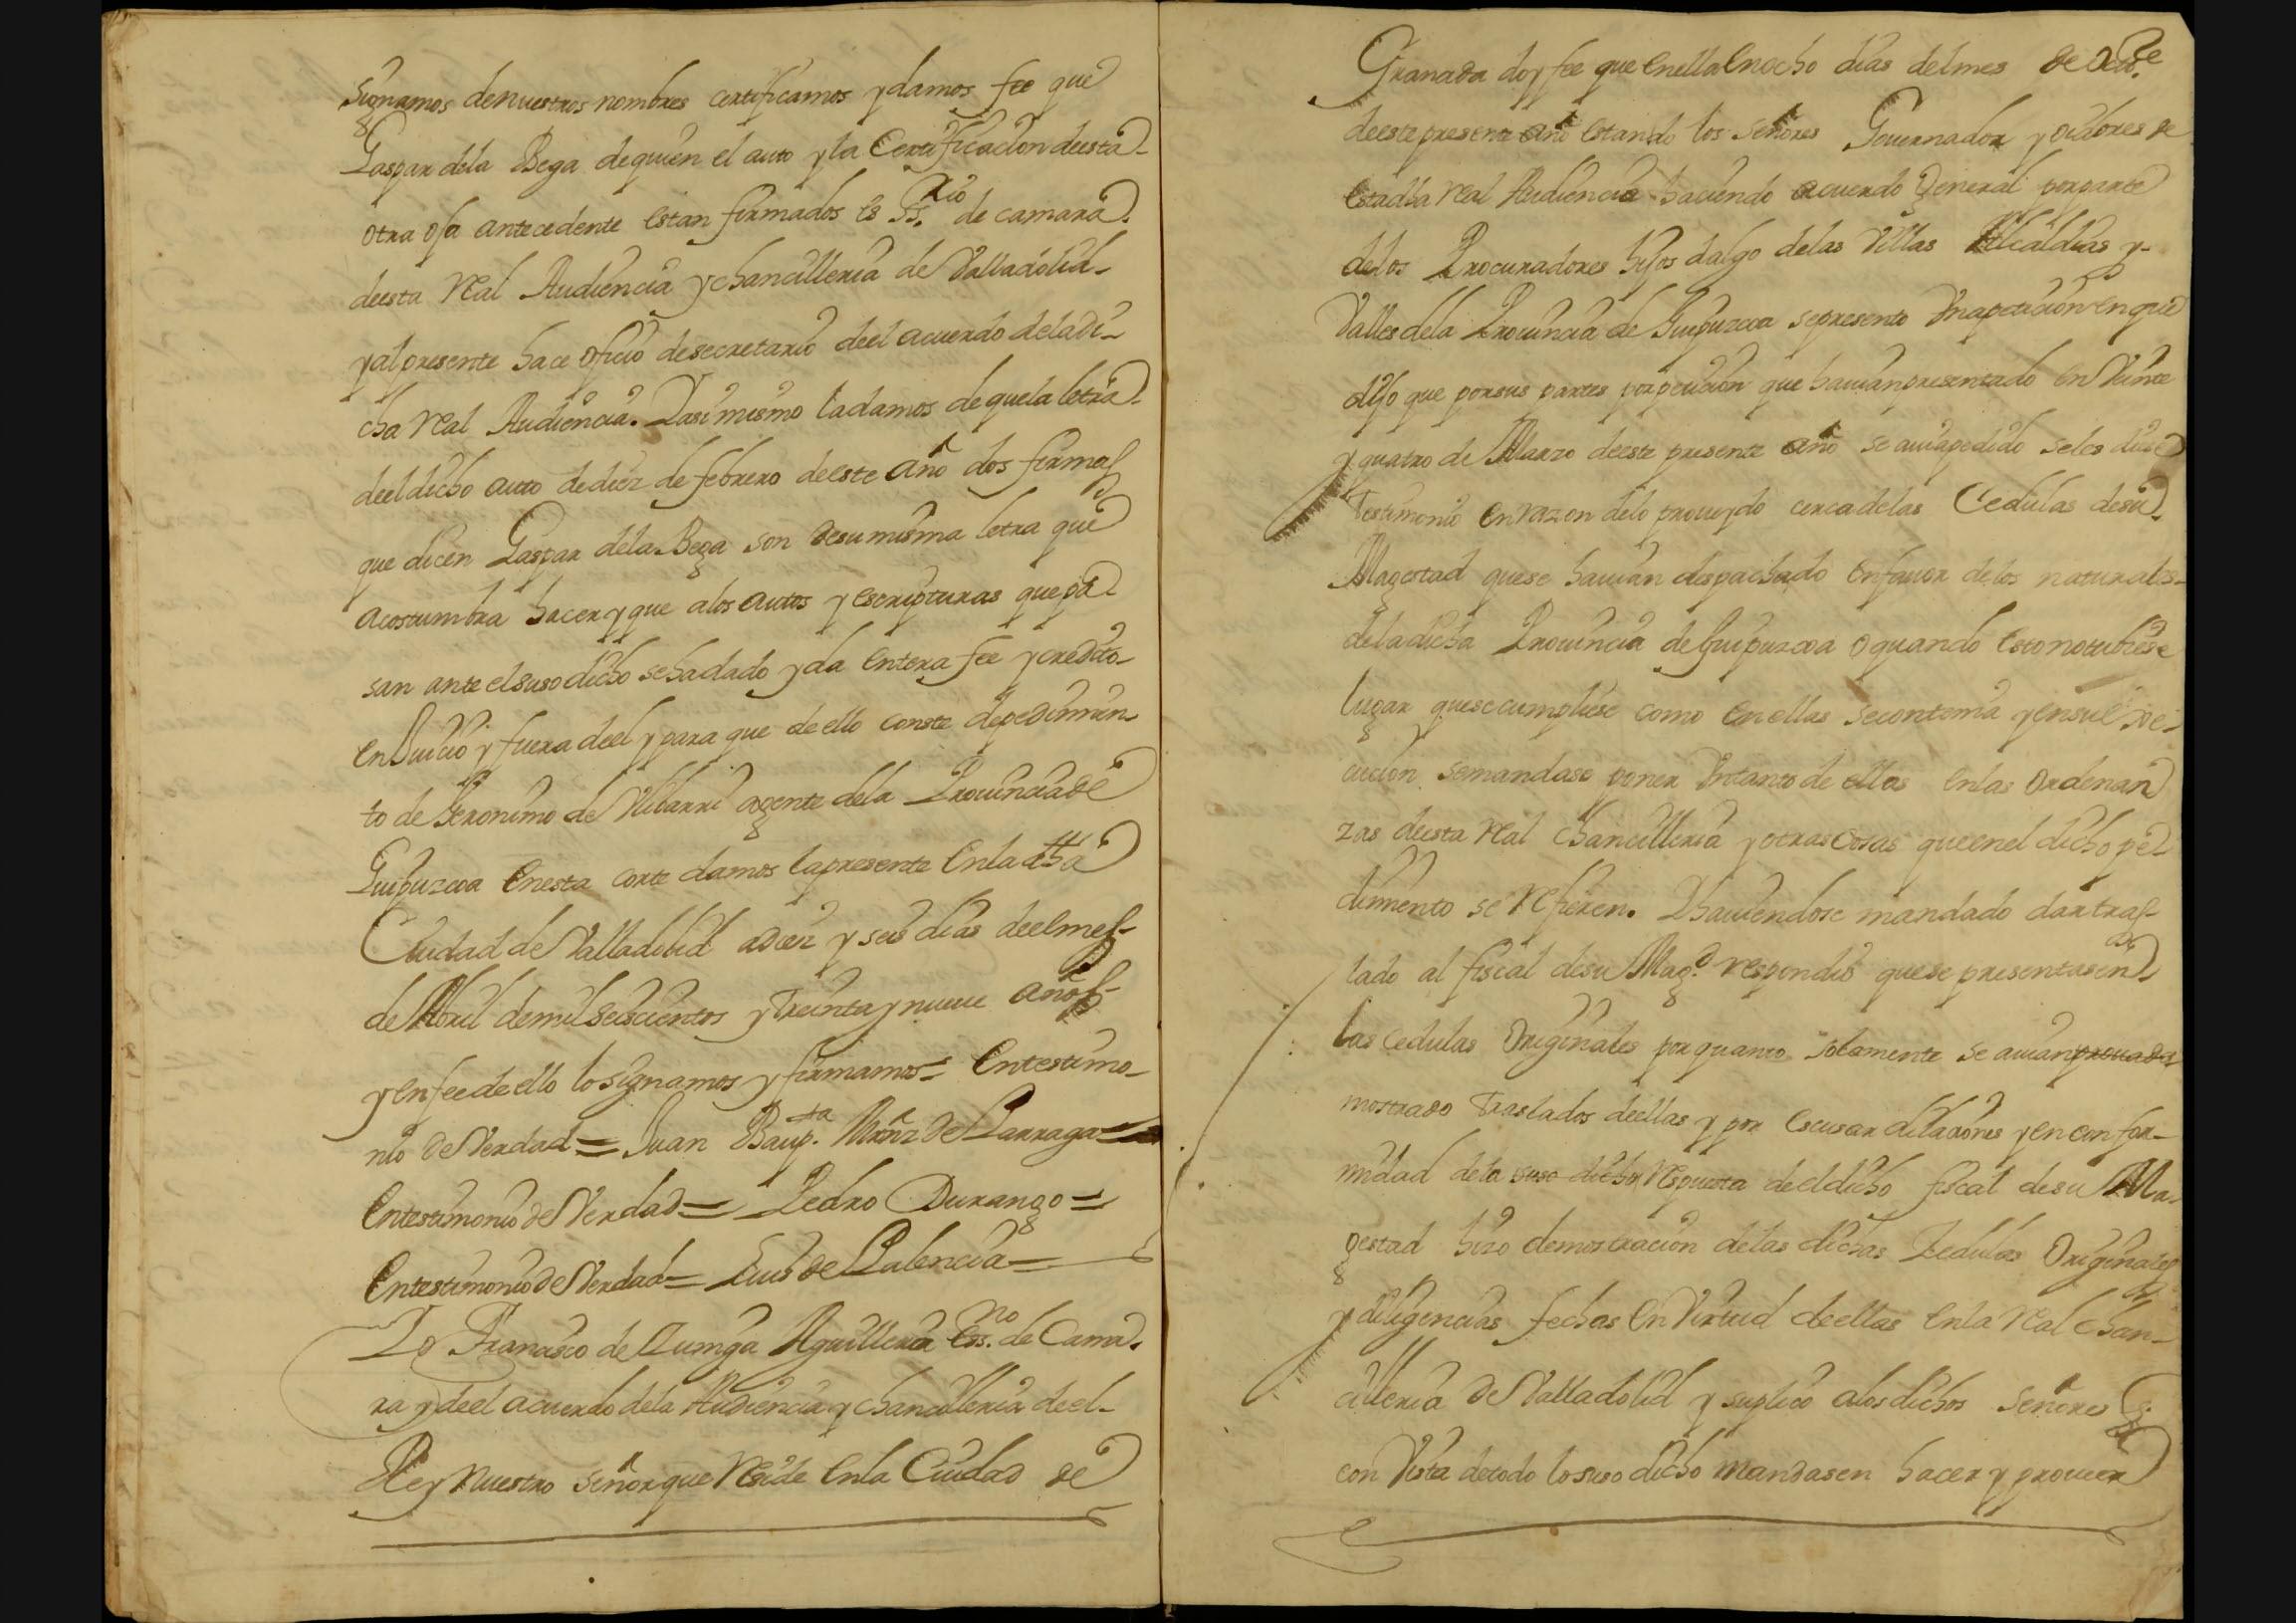 signamos denuestros nombres certificamos y damos fee que
Gaspar dela Bega dequien el auto y la Certificacion deesta
otra oja antecedente estan firmados es ss.rio de camara
deesta Real Audiencia y chancilleria de Valladolid
y al presente hace oficio desecretario deel acuerdo deladi-
cha Real Audiencia. Yasimismo ladamos de quela letra
deeldicho auto dediez de febrero deeste año dos firmas
que dicen Gaspar dela Bega son desumisma letra que
acostumbra hacer y que alos autos y escripturas que pa-
san ante elsusodicho sehadado y da entera fee y credito
en Juicio y fuera deel y para que de ello conste depedimien-
to de Geronimo de Ulibarri agente dela Prouinciade
Guipuzcoa enesta corte damos lapresente enladhã
Ciudad de Valladolid adiez y seis dias deelmes
de Abril demilseiscientos y treinta y nueue años
y enfeedeello losignamos y firmamos = Entestimo-
nio de Verdad = Juan Baup.ta Mrñz de Larraga =
Entestimonio de Verdad = Pedro Durango =
Entestimonio de Verdad = Luis de Palencia =
Yo Francisco de Zuniga Aguilleria Es.no de Cama-
ra y deel acuerdo dela Audiencia y chancilleria deel
Rey nuestro señor que Reside enla Ciudad de
Granada doy fee que enella enocho dias delmes de
deeste presente año estando los señores Gouernador y oidores de
estadha real Audiencia haciendo acuerdo General porparte
delos Procuradores hijos dalgo delas Villas Alcaldias y
Valles dela Prouincia de Guipuzcoa sepresento Vnapeticion enque
dijo que porsus partes porpeticion que hauianpresentado en Veinte
y quatro de Marzo deeste presente año se auiapedido seles diese
Testimonio en razon delo proueydo cercadelas Cedulas desu
Magestad quese hauian despachado enfauor delos naturales
deladicha Prouincia de Guipuzcoa o quando estonotubiese
lugar quesecumpliese como enellas secontenia y ensu exe-
cucion semandase poner Vntanto de ellas enlas Ordenan
zas deesta real Chancilleria y otrascosas queenel dicho pe-
dimiento se refieren. Yhauiendose mandado dar tras-
lado al fiscal desu Mag.d respondio quese presentasen
las cedulas Originales por quanto solamente se auian prouado
mostrado Traslados deellas y por escusar dilaciones y en confor-
midad dela suso dicha respuesta deeldicho fiscal desu Ma-
gestad hizo demostracion delas dichas Zedulas Originales
y diligencias fechas en Virtud deellas enla real Chan-
cilleria de Valladolid y suplico alosdichos señores
con Vista detodo lo suso dicho mandasen hacer y proueer